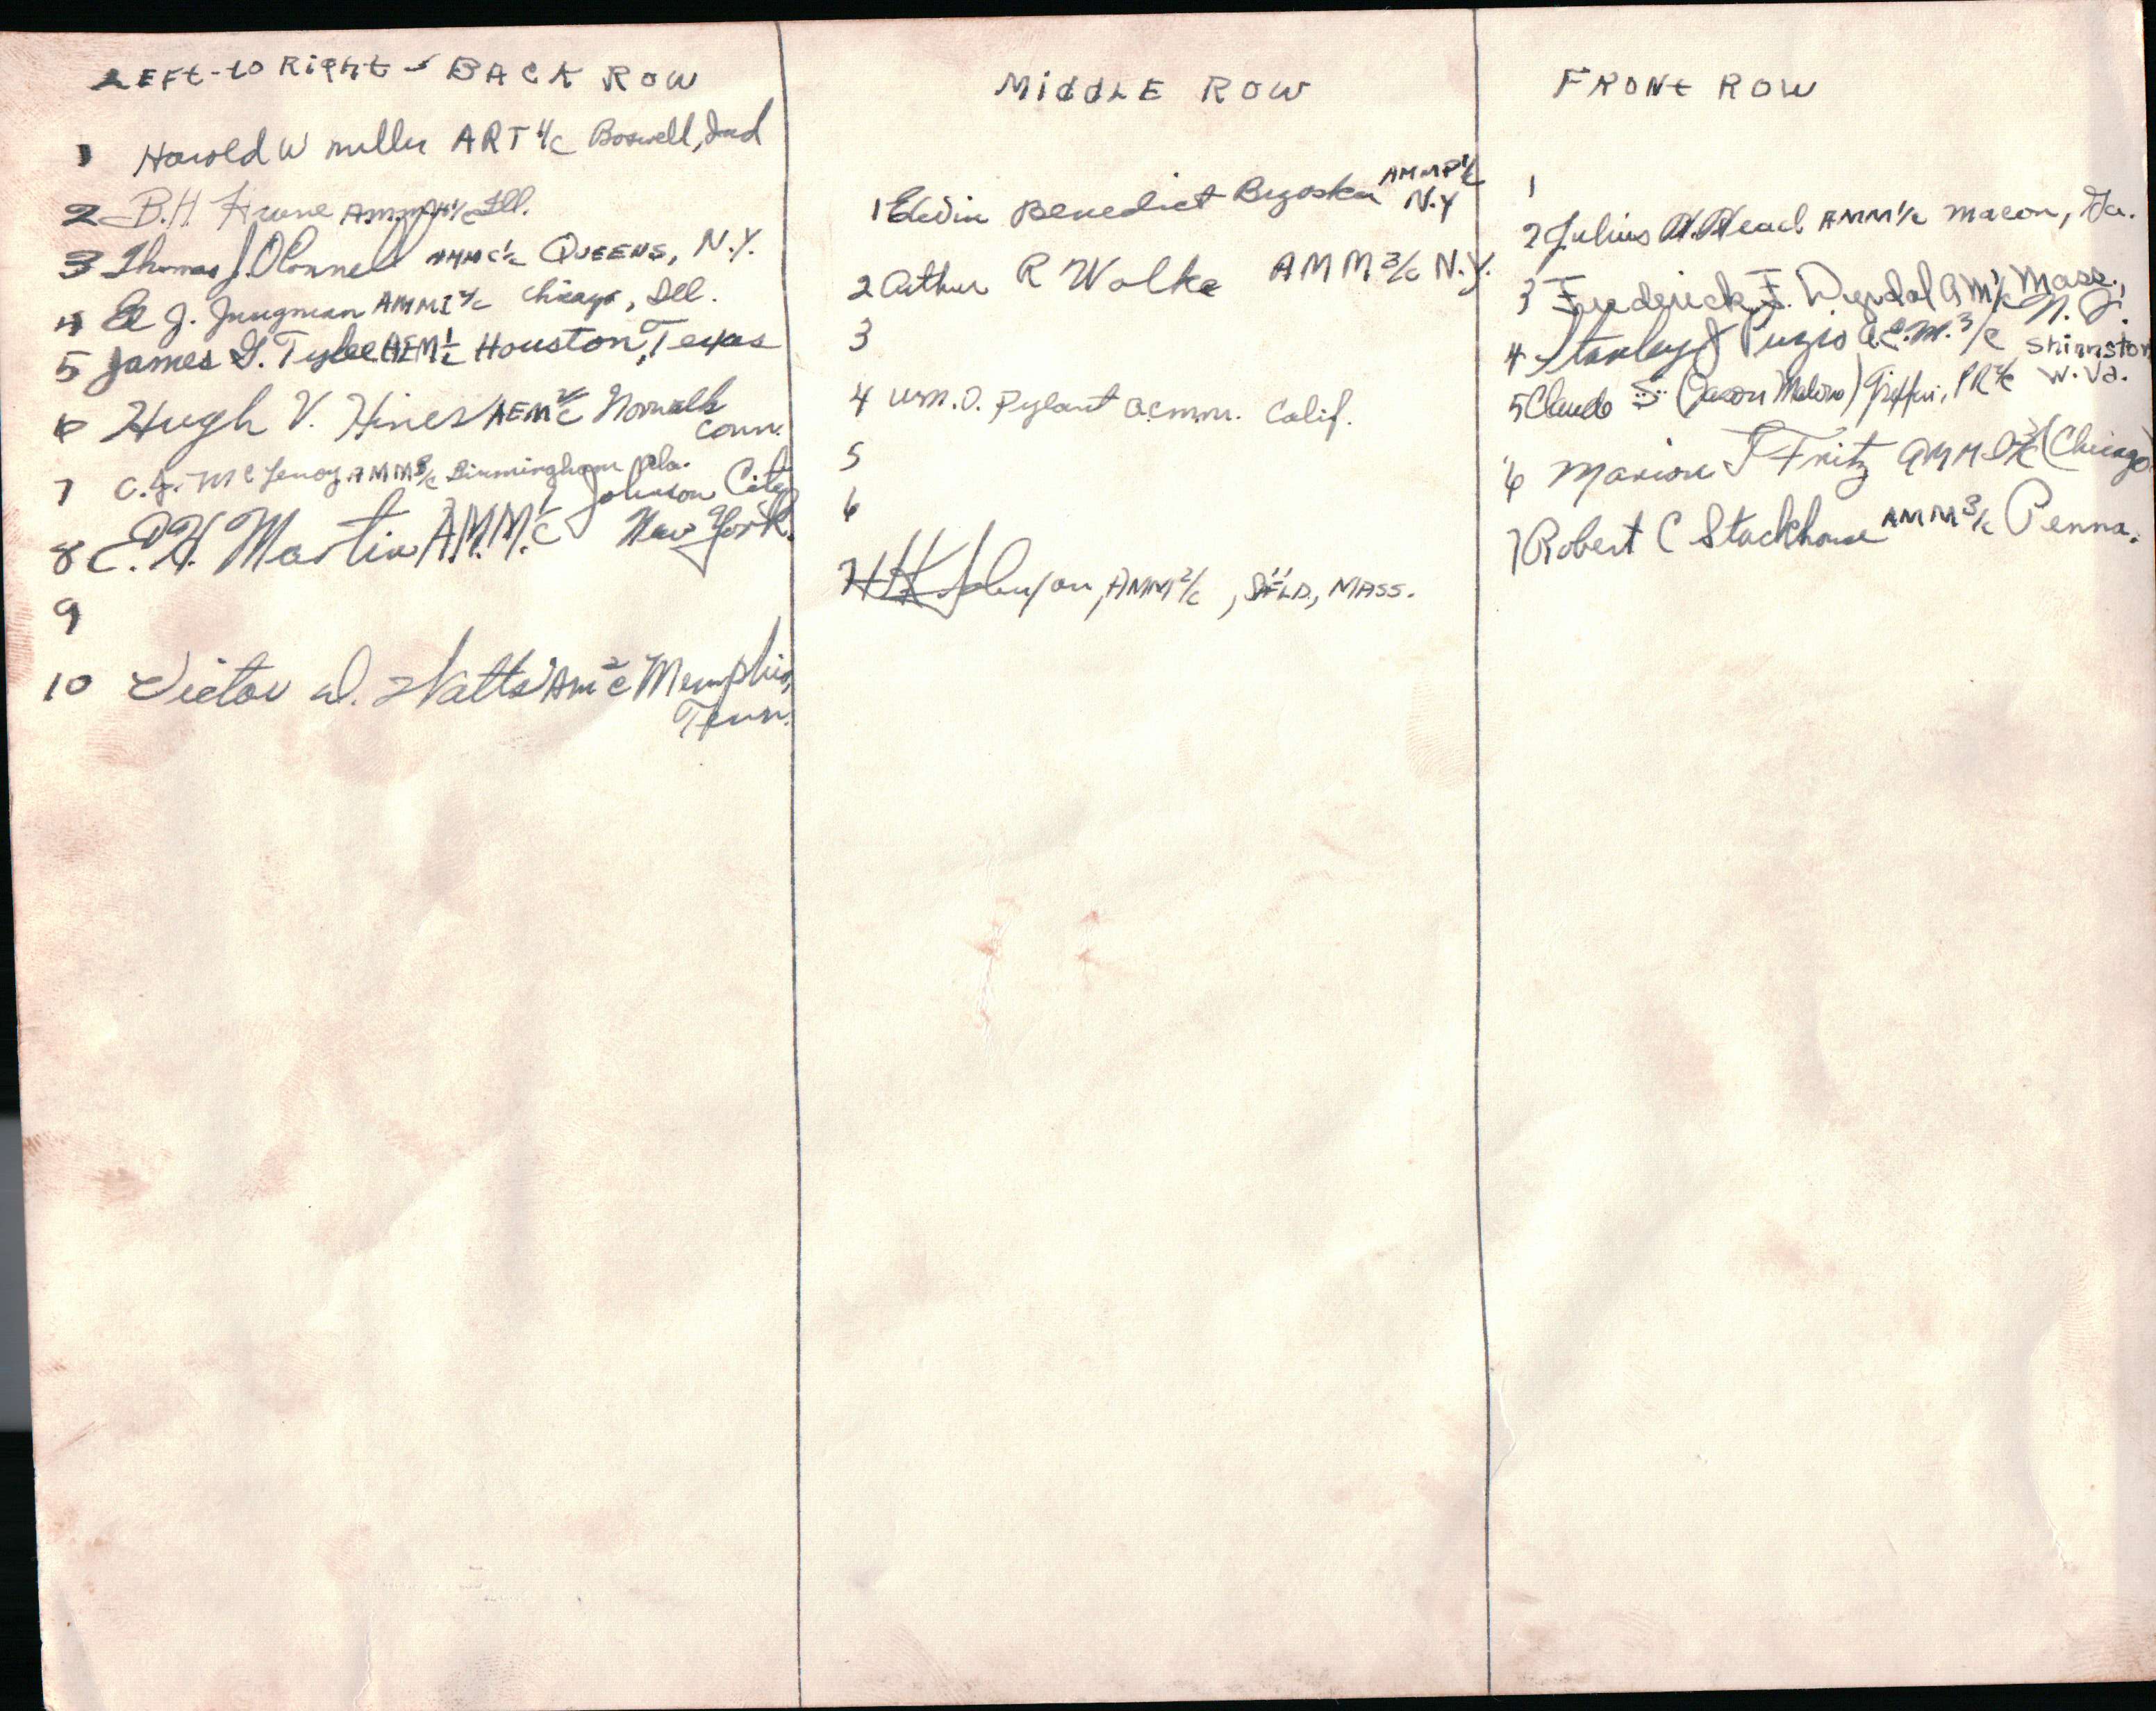 LEFt-to Right - BACK ROW
1 Harold W Miller ART 1/c Boswell, Ind
2 B.H. Ill.
3 Thomas J. O'Connell AMMC 1/c QUEENS, N.Y.
4 J. Jungman AMMI 2/c Chicago, Ill.
5 James G. Tyler AEM 1/c Houston, Texas
6 Hugh V. Hines AEM 2/c Norwalk
Conn.
7 C.J. AMM 3/c Birmingham Ala.
8 E.H. Martin A.M.M. 1/c Johnson City
New York.
9
10 Victor D. Watts AM 2/c Memphis,
Tenn.
MiddLE ROW
1 Edwin Benedict Bzoska AMMP 1/c
N.Y
2 Arthur R Wolke AMM 3/c N.Y.
3
4 Wm. O. Pylant a.c.m.m. Calif.
5
6
7 HK Johnson, AMM 2/c, SP'F'LD., MASS.
FRONt ROW
1
2 Julius H. Head AMM 1/c Macon, Ga.
3 Frederick F. AM 1/c Mass.,
4 Stanley J Puzio a.e.m. 3/c N.J.
5 Claude (Jason ) Griffin, PR 2/c Shinnston
W. Va.
6 Marion J Fritz AMM 2/c (Chicago)
7 Robert C Stackhouse AMM 3/c Penna.